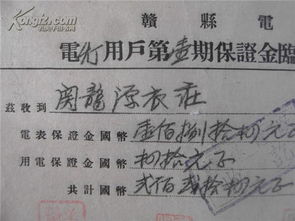 Kongfz.com
孔夫子旧书网
贛縣電
電灯用戶第壹期保證金臨
茲收到 関龍源衣莊
電表保證金國幣 壹佰捌拾元正
用電保證金國幣 拾元正
共計國幣 貳佰貳拾元正